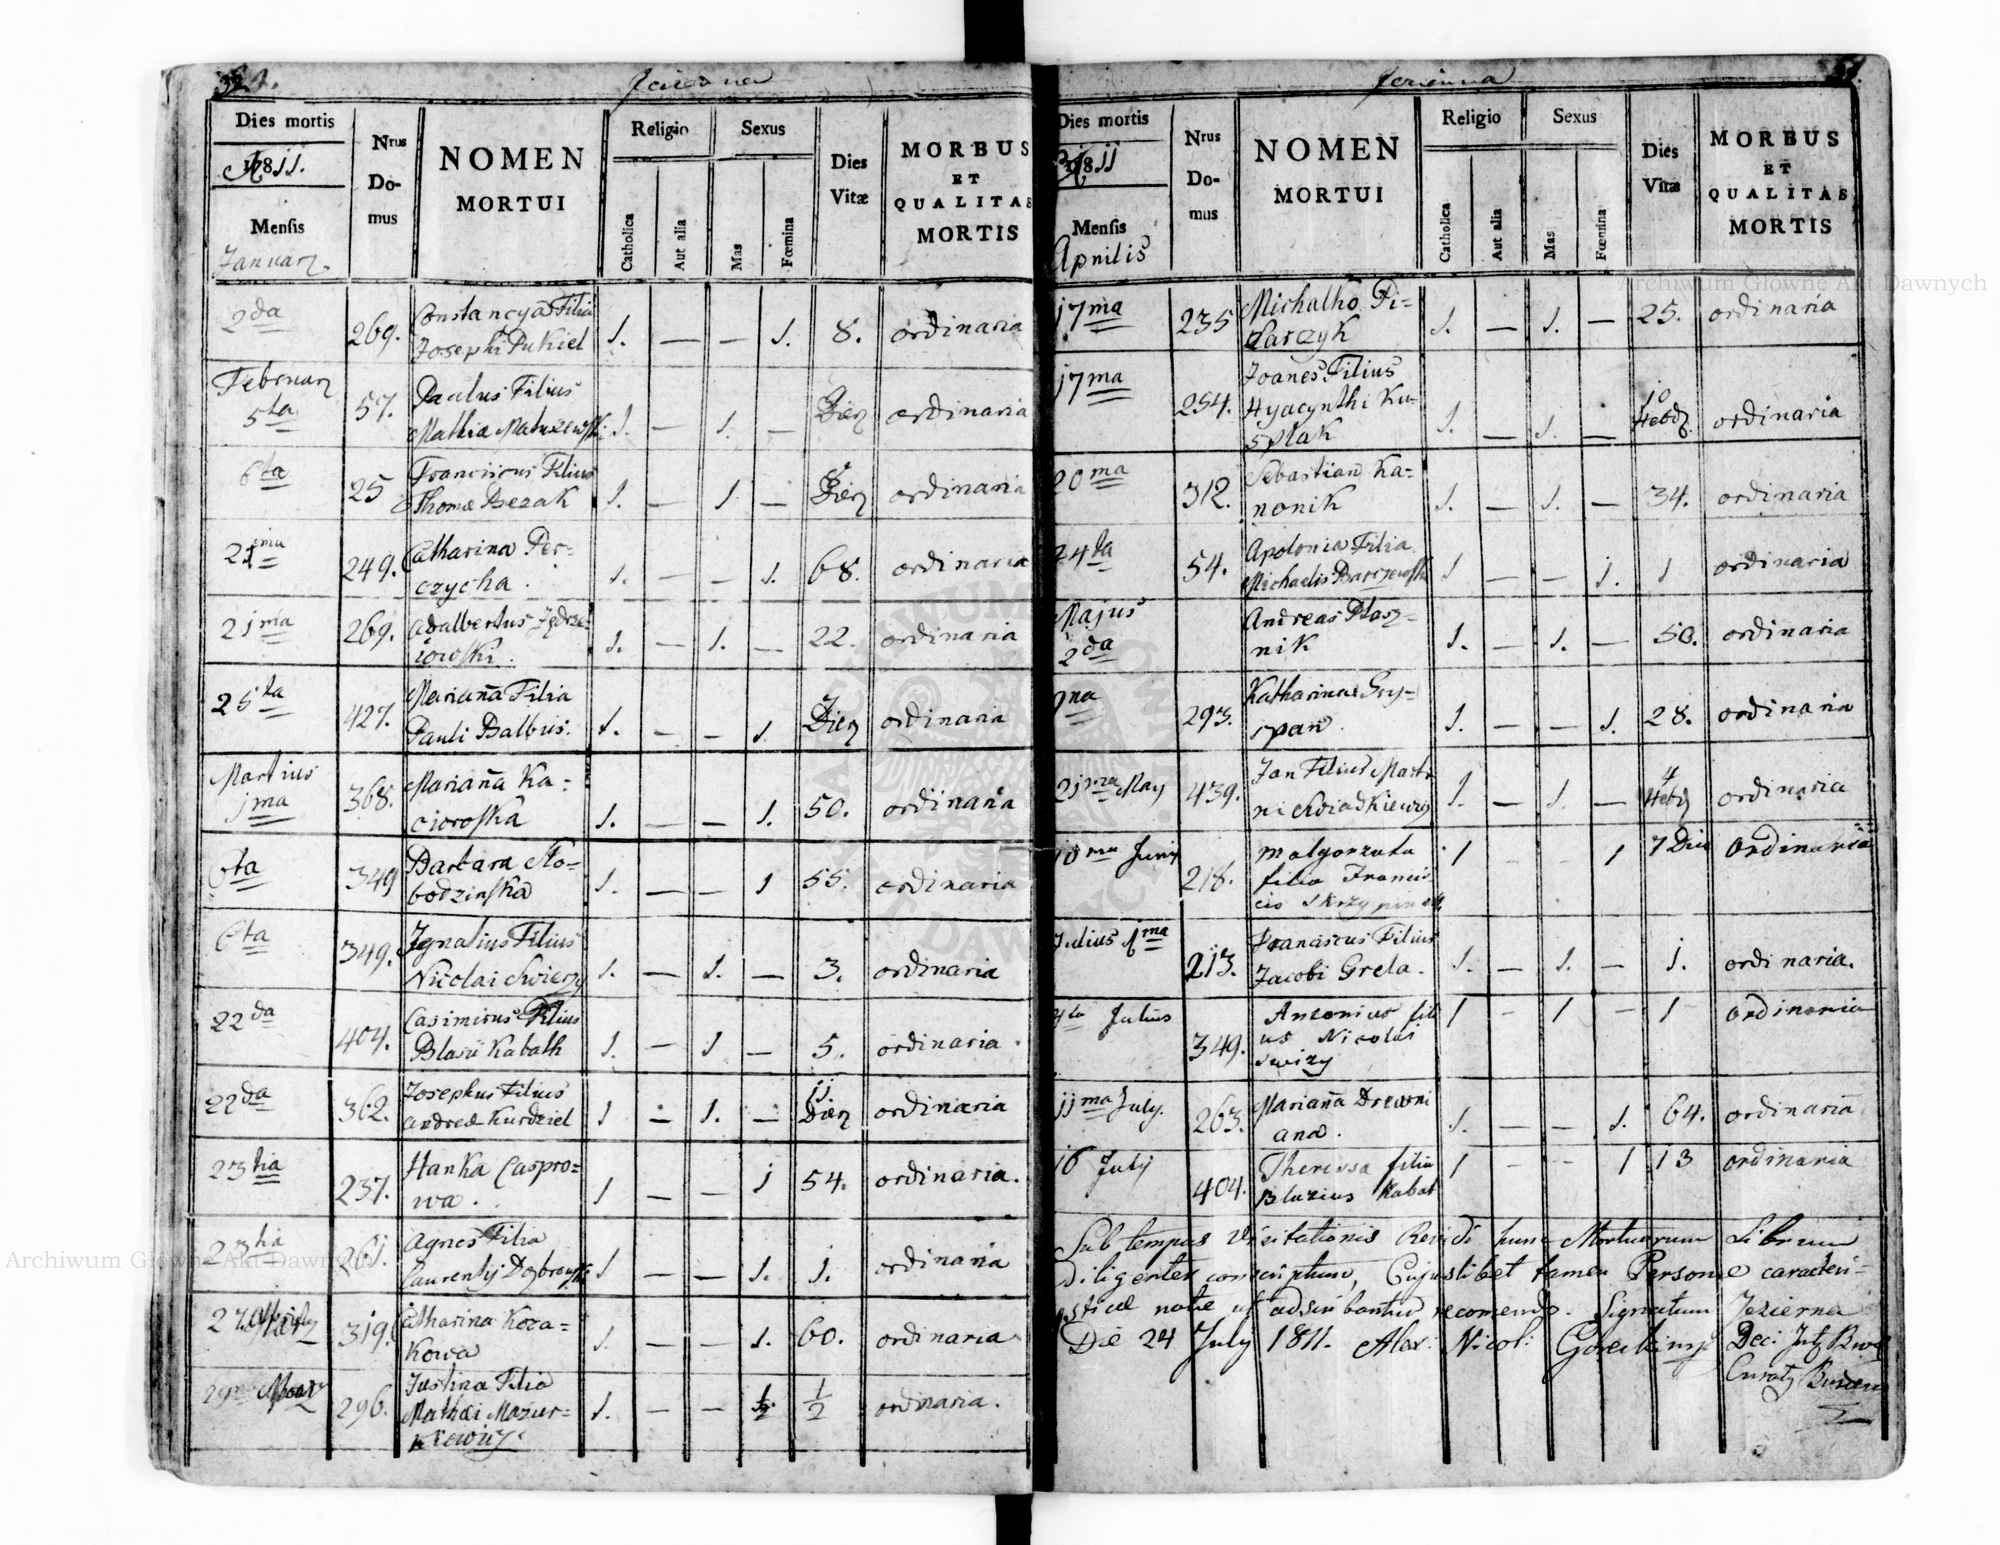 Dies mortis
1811.
Mensis
Januarz.
Nrus
Do-
mus
NOMEN
MORTUI
Religio
Catholica
Aut alia
Sexus
Mas
Fœmina
Dies
Vitæ
MORBUS
ET
QUALITAS
MORTIS
2da 269. Constancya Filia
Josephi Pukiel 1. — — 1. 8. ordinaria
Februarz
5ta 57. Paulus Filius
Mathiæ Matuszewski 1. — 1. — ordinaria
6ta 25 Franciscus Filius
Thomæ Bezak 1. — 1 — ordinaria
21ma 249. Catharina Per=
czycha. 1. — — 1. 68. ordinaria
21ma 269. Adalbertus Jędrze=
iowski. 1. — 1. — 22. ordinaria
25ta 427. Mariana Filia
Pauli Balbus. 1. — — 1. ordinaria
Martius
1ma 368. Mariana Ka=
cioroska 1. — — 1. 50. ordinaria
6ta 349 Barbara Slo=
bodzinska 1. — — 1 55. ordinaria
6ta 349. Ignatius Filius
Nicolai Swierzy 1. — 1. — 3. ordinaria
22da 404. Casimirus Filius
Blasii Kabath 1. — 1 — 5. ordinaria.
22da 362. Josephus Filius
Andreæ Kurdziel 1 — 1. — 11. Diez ordinaria
23tia 237. Hanka Caspro=
wa. 1 — — 1 54. ordinaria.
23tia 261. Agnes Filia
Laurentij Dąbrowski 1 — — 1. 1. ordinaria
27 319. Catharina Koza=
Kowa 1. — — 1. 60. ordinaria
29 296. Justina Filia
Mathæi Mazur=
kiewicz. 1. — — 1/2 ordinaria.
Dies mortis
1811
Mensis
Aprilis
Nrus
Do-
mus
NOMEN
MORTUI
Religio
Catholica
Aut alia
Sexus
Mas
Fœmina
Dies
Vitæ
MORBUS
ET
QUALITAS
MORTIS
17ma 235 Michalko Pi=
sarczyk 1. — 1. — 25. ordinaria
17ma 254. Joanes Filius
Hyacynthi Ku-
splak 1. — 1. — 10 ordinaria
20ma 312. Sebastian Ka=
nonik 1. — 1. — 34. ordinaria
24ta 54. Apolonia Filia
Michaelis Barczewski 1 — — 1. 1 ordinaria
Majus
2da Andreas Ptasz=
nik 1. — 1. — 50. ordinaria
9na 293. Katharina Gry=
span. 1. — — 1. 28. ordinaria
21ma May 439. Jan Filius Marti
ni 1. — 1. — 4 ordinaria
10ma Juny 218. Malgorzata
filia Francis-
1 - - 1 7 Die ordinaria
Julius 1ma 213. Franciscus Filius
Jacobi Grela. 1. — 1. — 1. ordinaria.
4ta Julius 349. Antonius fili
us Nicolai
Swirzy 1 - 1 - 1 ordinaria
11ma July. 263. Mariana Drewni
ana. 1. — — 1. 64. ordinaria
16 July 404. Theressa filia
Blazius Kabat 1 - - 1 13 ordinaria
Sub tempus Visitationis Revidi hunc Mortuorum Librum
Diligenter conscriptum, Cujuslibet tamen Personæ caracteri=
sticæ notæ ut adscribantur recomendo. Signatum Jezierna
Die 24 July 1811. Alex: Nicol:
Archiwum Główne Akt Dawnych
Archiwum Główne Akt Dawnych